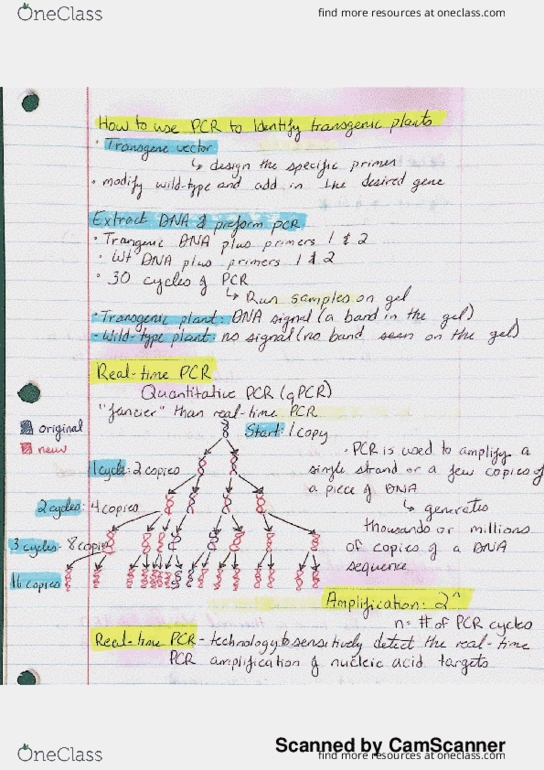 OneClass
find more resources at oneclass.com
How to use PCR to Identify transgenic plants
· Transgene vector
↳ design the specific primer
· modify wild-type and add in the desired gene
Extract DNA & preform PCR
· Trangenic DNA plus primers 1 & 2
· Wt DNA plus primers 1 & 2
· 30 cycles of PCR
↳ Run samples on gel
· Transgenic plant: DNA signal (a band in the gel)
- Wild-type plant: no signal (no band seen on the gel)
Real-time PCR
Quantitative PCR (qPCR)
"fancier" than real-time PCR
original
new
Start: 1 copy
1 cycle: 2 copies
2 cycles: 4 copies
3 cycles - 8 copies
16 copies
· PCR is used to amplify a
single strand or a few copies of
a piece of DNA
↳ generates
thousands or millions
of copies of a DNA
sequence
Amplification: 2^
n = # of PCR cycles
Real-time PCR - technology to sensitively detect the real-time
PCR amplification of nucleic acid targets
Scanned by CamScanner
OneClass
find more resources at oneclass.com